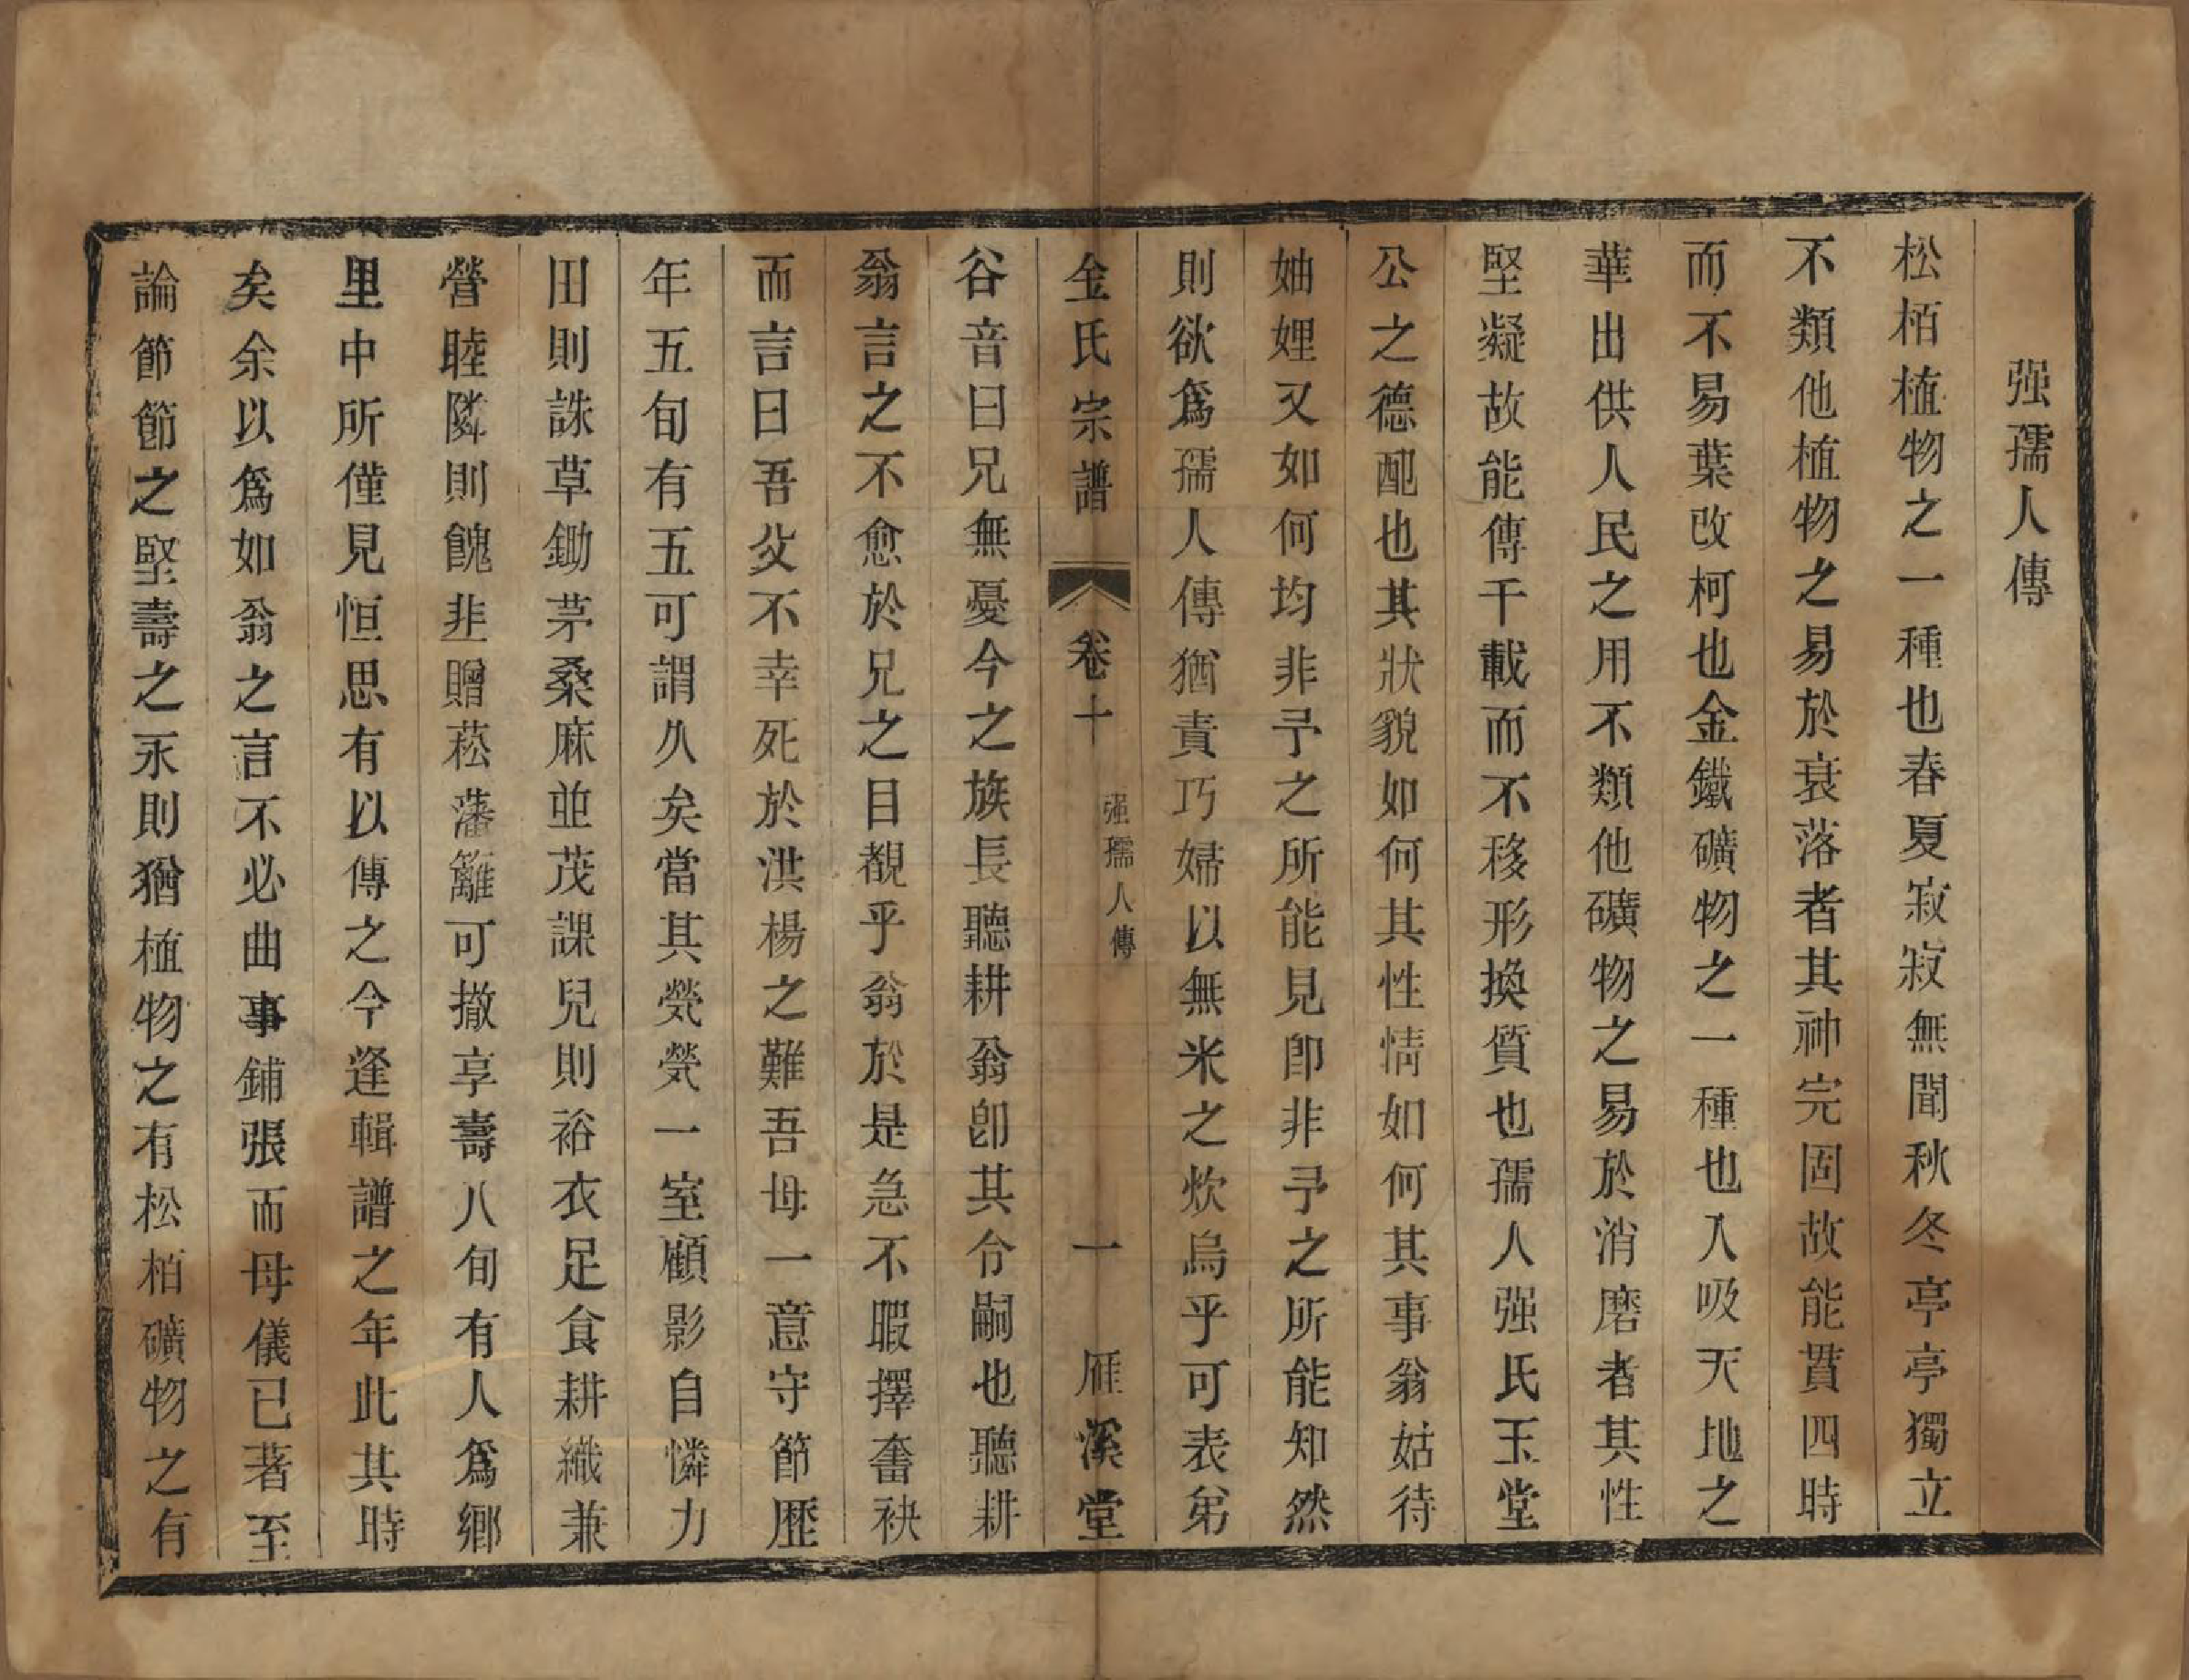 强孺人傳
松栢植物之一種也春夏寂寂無聞秋冬亭亭獨立
不類他植物之易於衰落者其神完固故能貫四時
而不易葉改柯也金鐵礦物之一種也入吸天地之
華出供人民之用不類他礦物之易於消磨者其性
堅凝故能傳千載而不移形換質也孺人强氏玉堂
公之德配也其狀貌如何其性情如何其事翁姑待
妯娌又如何均非予之所能見卽非予之所能知然
則欲爲孺人傳猶責巧婦以無米之炊烏乎可表弟
金氏宗譜
卷十
强孺人傳
一
雁溪堂
谷音曰兄無憂今之族長聽耕翁卽其令嗣也聽耕
翁言之不愈於兄之目覩乎翁於是急不暇擇奮袂
而言曰吾父不幸死於洪楊之難吾母一意守節歷
年五旬有五可謂久矣當其煢煢一室顧影自憐力
田則誅草鋤茅桑麻並茂課兒則裕衣足食耕織兼
營睦隣則餽韭贈菘藩籬可撤享壽八旬有人爲鄉
里中所僅見恒思有以傳之今逢輯譜之年此其時
矣余以爲如翁之言不必曲事鋪張而母儀已著至
論節節之堅壽之永則猶植物之有松柏礦物之有